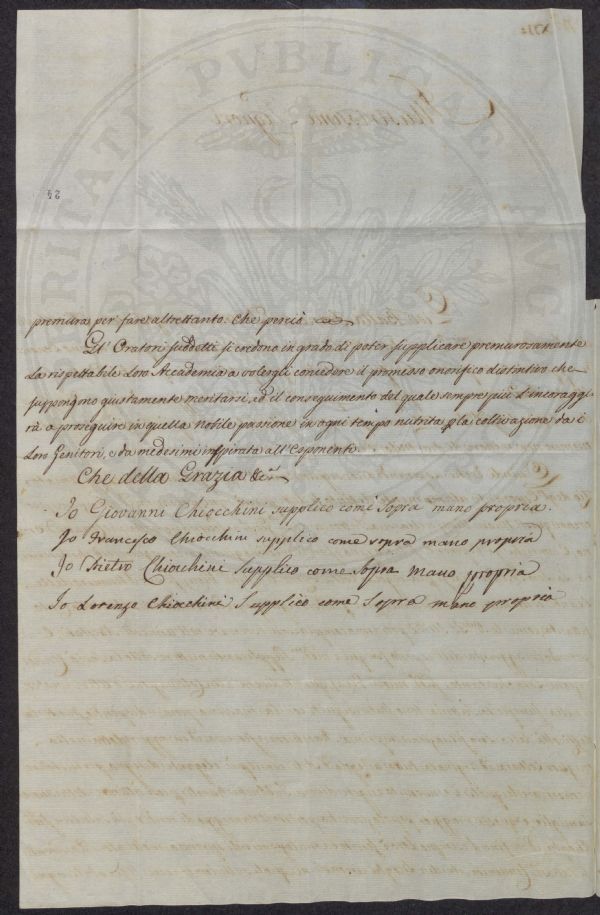 premura per fare altrettanto. Che perciò
Gl' Oratori suddetti si credono in grado di poter supplicare premurosamente
la rispettabile Loro Accademia a volergli concedere il promesso onorifico distintivo che
suppongono giustamente meritarsi, ed il conseguimento del quale sempre più l'incoraggi
rà a proseguire in quella nobile passione in ogni tempo nutrita p la coltivazione da i
Loro Genitori, e da medesimi inspirata all' Esponente.
Che della Grazia &c.
Io Giovanni Chiocchini supplico come sopra mano propria.
Io Francesco Chiocchini supplico come sopra mano propria
Io Pietro Chiocchini supplico come sopra mano propria
Io Lorenzo Chiocchini supplico come sopra mano propria